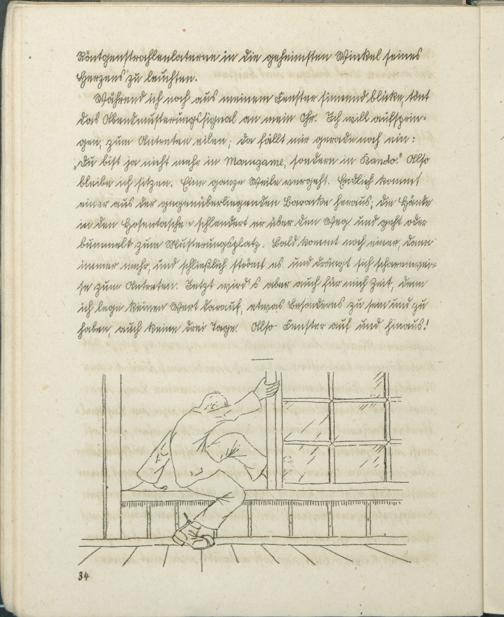 Röntgenstrahlenlaterne in die geheimsten Winkel seines
Herzens zu leuchten.
Während ich noch aus meinem Fenster sinnend blicke, tönt
das Abendmusterungssignal an mein Ohr. Ich will aufsprin-
gen, zum Antreten eilen; da fällt mir gerade noch ein:
„Du bist ja nicht mehr in Matsuyama, sondern in Bando." Also
bleibe ich sitzen. Eine ganze Weile vergeht. Endlich kommt
einer aus der gegenüberliegenden Baracke heraus; die Hände
in den Hosentaschen schlendert er über den Weg und geht oder
bummelt zum Musterungsplatz. Bald kommt noch einer, dann
immer mehr, und schließlich strömt es und drängt sich scharenwei-
se zum Antreten. Jetzt wird's aber auch für mich Zeit, denn
ich lege keinen Wert darauf, etwas Besonderes zu sein und zu
haben, auch keine drei Tage. Also Fenster auf und hinaus!
34